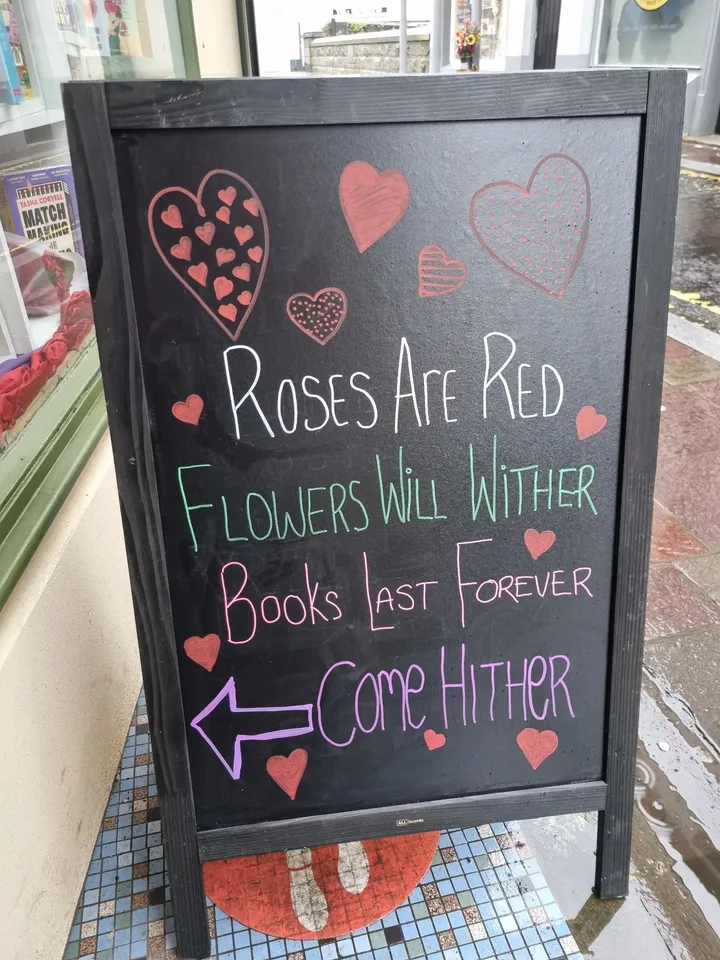 TASHA CORYELL
MATCH
MAKING
Roses Are Red
Flowers Will Wither
Books Last Forever
Come Hither
ALLboards